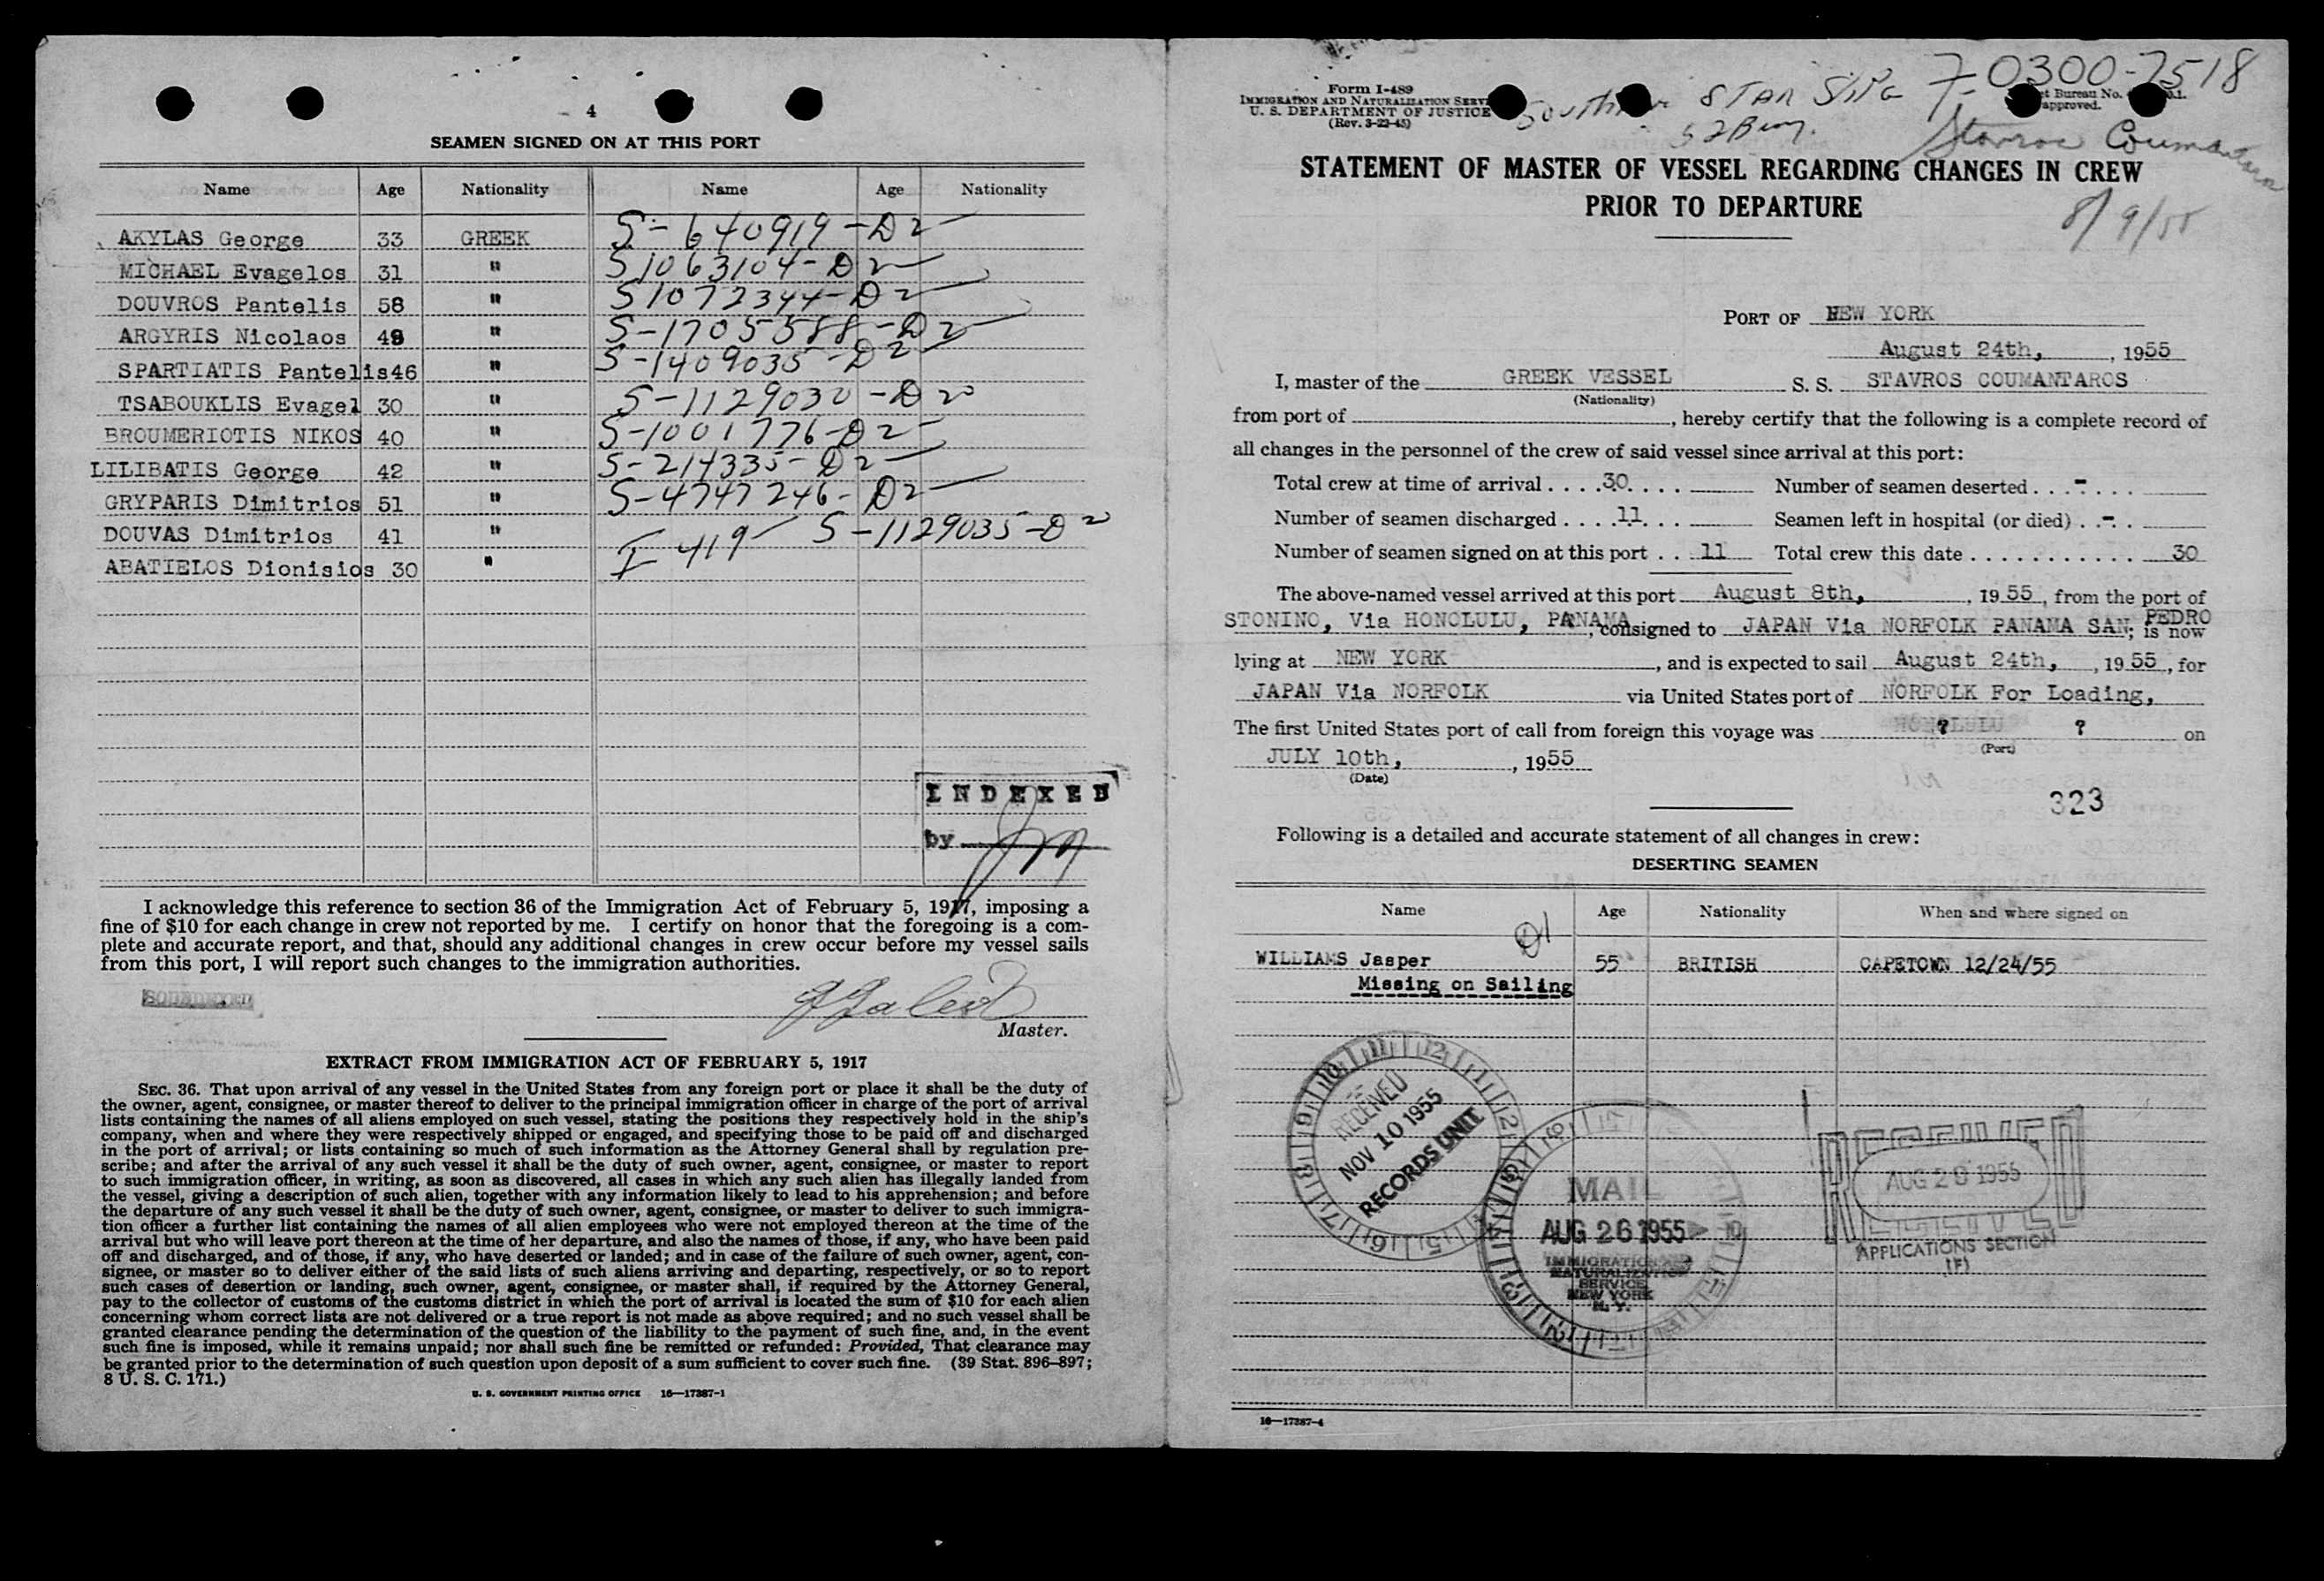 4
SEAMEN SIGNED ON AT THIS PORT
Name Age Nationality Name Age Nationality
AKYLAS George 33 GREEK S-640919-D2
MICHAEL Evagelos 31 " S1063104-D2
DOUVROS Pantelis 58 " S1072344-D2
ARGYRIS Nicolaos 49 " S-1705588-D2
SPARTIATIS Pantelis 46 " S-1409035-D2
TSABOUKLIS Evagel 30 " S-1129030-D2
BROUMERIOTIS NIKOS 40 " S-1001776-D2
LILIBATIS George 42 " S-214335-D2
GRYPARIS Dimitrios 51 " S-4747246-D2
DOUVAS Dimitrios 41 " S-1129035-D2
ABATIELOS Dionisios 30 " I 419
INDEXED
by
I acknowledge this reference to section 36 of the Immigration Act of February 5, 1917, imposing a
fine of $10 for each change in crew not reported by me. I certify on honor that the foregoing is a com-
plete and accurate report, and that, should any additional changes in crew occur before my vessel sails
from this port, I will report such changes to the immigration authorities.
Master.
EXTRACT FROM IMMIGRATION ACT OF FEBRUARY 5, 1917
SEC. 36. That upon arrival of any vessel in the United States from any foreign port or place it shall be the duty of
the owner, agent, consignee, or master thereof to deliver to the principal immigration officer in charge of the port of arrival
lists containing the names of all aliens employed on such vessel, stating the positions they respectively hold in the ship's
company, when and where they were respectively shipped or engaged, and specifying those to be paid off and discharged
in the port of arrival; or lists containing so much of such information as the Attorney General shall by regulation pre-
scribe; and after the arrival of any such vessel it shall be the duty of such owner, agent, consignee, or master to report
to such immigration officer, in writing, as soon as discovered, all cases in which any such alien has illegally landed from
the vessel, giving a description of such alien, together with any information likely to lead to his apprehension; and before
the departure of any such vessel it shall be the duty of such owner, agent, consignee, or master to deliver to such immigra-
tion officer a further list containing the names of all alien employees who were not employed thereon at the time of the
arrival but who will leave port thereon at the time of her departure, and also the names of those, if any, who have been paid
off and discharged, and of those, if any, who have deserted or landed; and in case of the failure of such owner, agent, con-
signee, or master so to deliver either of the said lists of such aliens arriving and departing, respectively, or so to report
such cases of desertion or landing, such owner, agent, consignee, or master shall, if required by the Attorney General,
pay to the collector of customs of the customs district in which the port of arrival is located the sum of $10 for each alien
concerning whom correct lists are not delivered or a true report is not made as above required; and no such vessel shall be
granted clearance pending the determination of the question of the liability to the payment of such fine, and, in the event
such fine is imposed, while it remains unpaid; nor shall such fine be remitted or refunded: Provided, That clearance may
be granted prior to the determination of such question upon deposit of a sum sufficient to cover such fine. (39 Stat. 896-897;
8 U. S. C. 171.)
U. S. GOVERNMENT PRINTING OFFICE 16—17387-1
Form I-489
IMMIGRATION AND NATURALIZATION
U. S. DEPARTMENT OF JUSTICE
(Rev. 3-22-45)
STAR
7-0300-7518
Bureau No.
approved.
Stavros Coumantaros
8/9/55
STATEMENT OF MASTER OF VESSEL REGARDING CHANGES IN CREW
PRIOR TO DEPARTURE
PORT OF NEW YORK
August 24th, , 1955
I, master of the GREEK VESSEL S. S. STAVROS COUMANTAROS
(Nationality)
from port of , hereby certify that the following is a complete record of
all changes in the personnel of the crew of said vessel since arrival at this port:
Total crew at time of arrival . . . . 30 . . . . Number of seamen deserted . . . - . . . .
Number of seamen discharged . . . . 11 . . . Seamen left in hospital (or died) . . - . .
Number of seamen signed on at this port . . 11 Total crew this date . . . . . . . . . . . . 30
The above-named vessel arrived at this port August 8th, , 1955, from the port of
STONINO, Via HONOLULU, PANAMA, consigned to JAPAN Via NORFOLK PANAMA SAN PEDRO; is now
lying at NEW YORK , and is expected to sail August 24th, , 1955, for
JAPAN Via NORFOLK via United States port of NORFOLK For Loading,
The first United States port of call from foreign this voyage was HONOLULU ? ? on
(Port)
JULY 10th, , 1955
(Date)
323
Following is a detailed and accurate statement of all changes in crew:
DESERTING SEAMEN
Name Age Nationality When and where signed on
D1
WILLIAMS Jasper 55 BRITISH CAPETOWN 12/24/55
Missing on Sailing
RECEIVED
NOV 10 1955
RECORDS UNIT
MAIL
AUG 26 1955
IMMIGRATION AND
NATURALIZATION
SERVICE
NEW YORK
N. Y.
RECEIVED
AUG 28 1955
RECEIVED
APPLICATIONS SECTION
(F)
16—17387-4